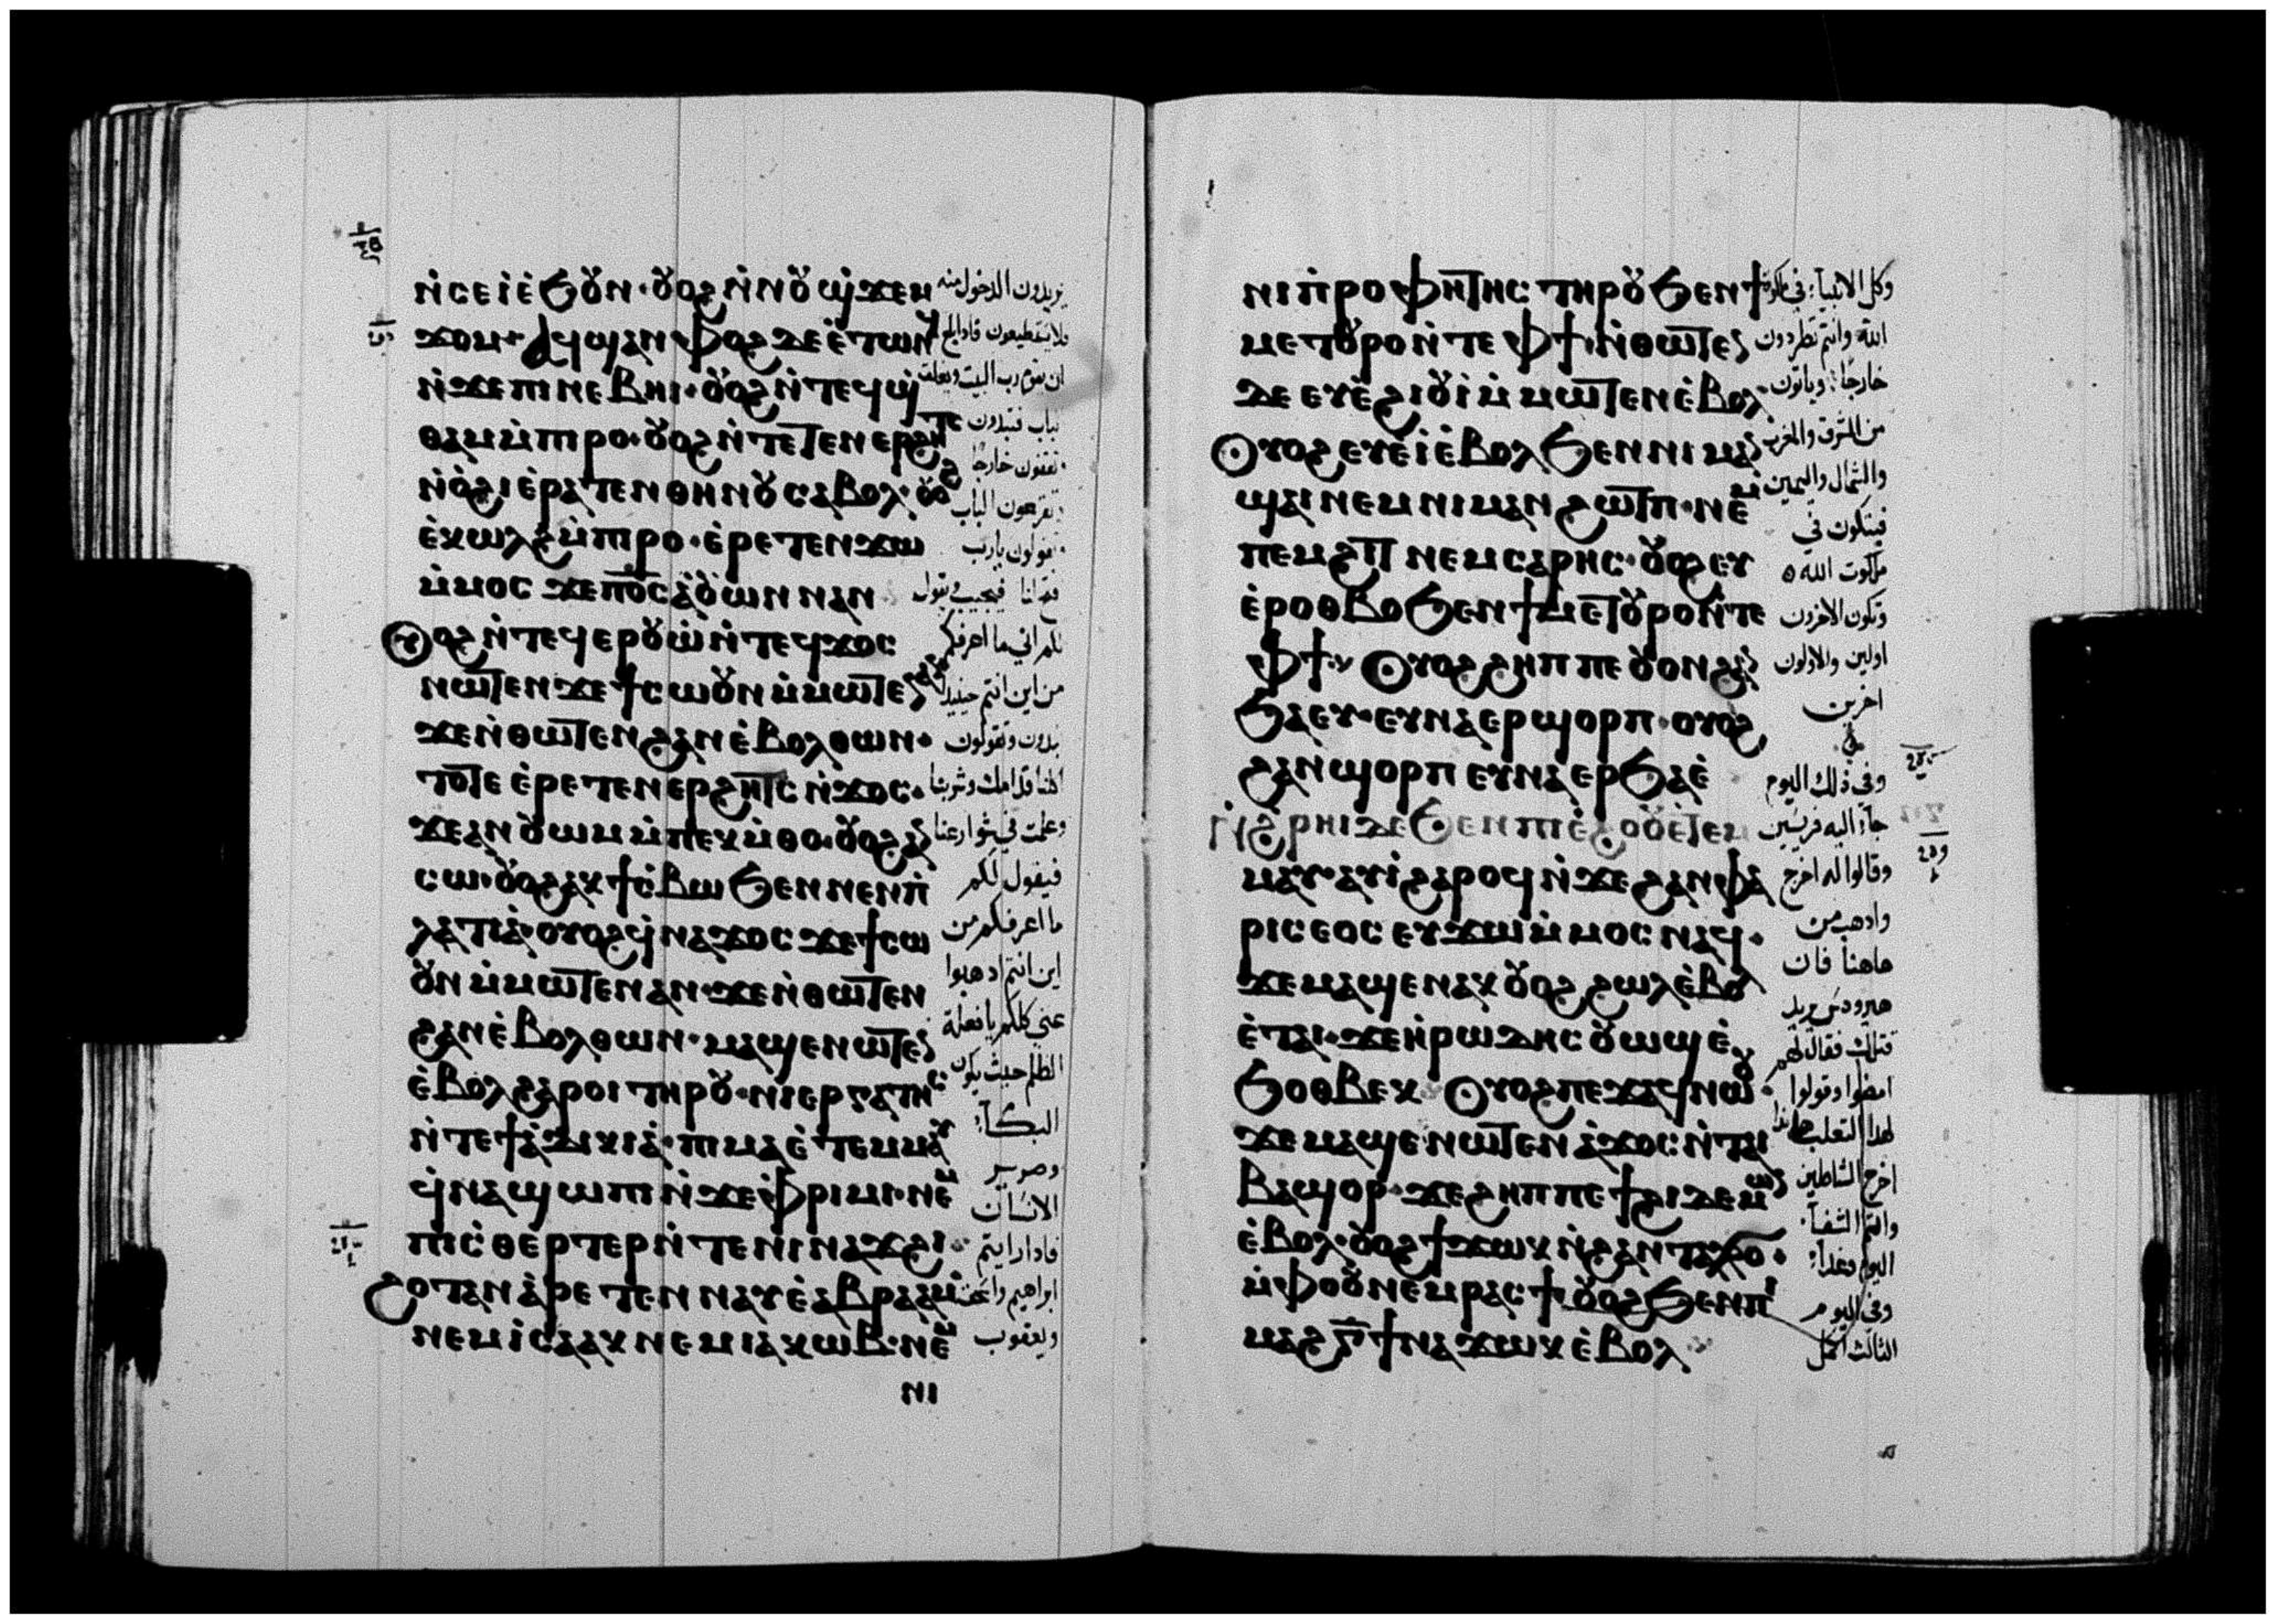 ⲛ̀ⲥⲉⲓ̀ⲉ̀ϧⲟⲩⲛ· ⲟⲩⲟϩ ⲛ̀ⲛⲟⲩϣ̀ϫⲉⲙ
ϫⲟⲙ· ⲁϥϣⲁⲛ ⲫⲟϩ ⲇⲉ ⲉ̀ⲧⲱⲛϥ
ⲛ̀ϫⲉⲡⲓⲛⲉⲃⲏⲓ· ⲟⲩⲟϩ ⲛ̀ⲧⲉϥϣ̀
ⲑⲁⲙ ⲙ̀ⲡⲓⲣⲟ· ⲟⲩⲟϩ ⲛ̀ⲧⲉⲧⲉⲛⲉⲣϩⲏⲧⲥ
ⲛ̀ⲟ̀ϩⲓ ⲉ̀ⲣⲁⲧⲉⲛ ⲑⲏⲛⲟⲩ ⲥⲁⲃⲟⲗ· ⲟⲩⲟϩ
ⲉ̀ⲕⲱⲗϩ ⲙ̀ⲡⲓⲣⲟ· ⲉ̀ⲣⲉⲧⲉⲛϫⲱ
ⲙ̀ⲙⲟⲥ ϫⲉ ⲡⲟ̅ⲥ̅ ⲁ̀ⲟⲩⲱⲛ ⲛⲁⲛ
ⲟⲩⲟϩ ⲛ̀ⲧⲉϥⲉⲣⲟⲩⲱ̀ ⲛ̀ⲧⲉϥϫⲟⲥ
ⲛⲱⲧⲉⲛ ϫⲉ ϯⲥⲱⲟⲩⲛ ⲙ̀ⲙⲱⲧⲉⲛ ⲁⲛ
ϫⲉ ⲛ̀ⲑⲱⲧⲉⲛ ϩⲁⲛⲉ̀ⲃⲟⲗ ⲑⲱⲛ·
ⲧⲟⲧⲉ ⲉ̀ⲣⲉⲧⲉⲛⲉⲣϩⲏⲧⲥ ⲛ̀ϫⲟⲥ·
ϫⲉ ⲁⲛⲟⲩⲱⲙ ⲙ̀ⲡⲉⲕⲙ̀ⲑⲟ· ⲟⲩⲟϩ ⲁⲛ
ⲥⲱ· ⲟⲩⲟϩ ⲁⲕϯⲥ̀ⲃⲱ ϧⲉⲛ ⲛⲉⲛⲡ̀
ⲗⲁⲧⲓⲁ̀· ⲟⲩⲟϩ ϥ̀ⲛⲁϫⲟⲥ ϫⲉ ϯⲥⲱ
ⲟⲩⲛ ⲙ̀ⲙⲱⲧⲉⲛ ⲁⲛ· ϫⲉ ⲛ̀ⲑⲱⲧⲉⲛ
ϩⲁⲛⲉ̀ⲃⲟⲗ ⲑⲱⲛ· ⲙⲁϣⲉⲛⲱⲧⲉⲛ
ⲉ̀ⲃⲟⲗ ϩⲁⲣⲟⲓ ⲧⲏⲣⲟⲩ· ⲛⲓⲉⲣⲅⲁⲧⲏⲥ
ⲛ̀ⲧⲉ ϯⲁ̀ⲇⲓⲕⲓⲁ̀· ⲡⲓⲙⲁ ⲉ̀ⲧⲉⲙⲙⲁⲩ
ϥ̀ⲛⲁϣⲱⲡⲓ ⲛ̀ϫⲉ ⲫ̀ⲣⲓⲙⲓ· ⲛⲉⲙ
ⲡⲓⲥ̀ⲑⲉⲣⲧⲉⲣ ⲛ̀ⲧⲉ ⲛⲓⲛⲁϫϩⲓ·
ϩⲟⲧⲁⲛ ⲁ̀ⲣⲉⲧⲉⲛⲛⲁⲩ ⲉ̀ⲁⲃⲣⲁⲁⲙ
ⲛⲉⲙ ⲓ̀ⲥⲁⲁⲕ ⲛⲉⲙ ⲓⲁⲕⲱⲃ· ⲛⲉⲙ
ⲛⲓ
يريدون الدخول منه
فلا يستطيعون فاذا بلغ
ان يقوم رب البيت ويغلق
الباب فتبدون
تقفون خارجًا
وتقرعون الباب
وتقولون يا رب
افتح لنا فيجيب ويقول
لكم اني ما اعرفكم
من اين انتم حينيذ
تبدون وتقولون
اكلنا قدامك وشربنا
وعلمت في شوارعنا
فيقول لكم
ما اعرفكم من
اين انتم اذهبوا
عني كلكم يا فعلة
الظلم حيث يكون
البكآ
وصرير
الاسنان
فاذا رايتم
ابراهيم واسحق
ويعقوب
ⲛⲓⲡ̀ⲣⲟⲫⲏⲧⲏⲥ ⲧⲏⲣⲟⲩ ϧⲉⲛ ϯ
ⲙⲉⲧⲟⲩⲣⲟ ⲛ̀ⲧⲉ ⲫϯ· ⲛ̀ⲑⲱⲧⲉⲛ
ⲇⲉ ⲉⲩⲉ̀ϩⲓⲟⲩⲓ̀ ⲙ̀ⲙⲱⲧⲉⲛ ⲉ̀ⲃⲟⲗ·
ⲟⲩⲟϩ ⲉⲩⲉ̀ⲓ̀ ⲉ̀ⲃⲟⲗ ϧⲉⲛ ⲛⲓⲙⲁⲛ
ϣⲁⲓ ⲛⲉⲙ ⲛⲓⲙⲁⲛϩⲱⲧⲡ· ⲛⲉⲙ
ⲡⲉⲙϩⲓⲧ ⲛⲉⲙ ⲥⲁⲣⲏⲥ· ⲟⲩⲟϩ ⲉⲩ
ⲉ̀ⲣⲟⲑⲃⲟⲩ ϧⲉⲛ ϯⲙⲉⲧⲟⲩⲣⲟ ⲛ̀ⲧⲉ
ⲫϯ· ⲟⲩⲟϩ ϩⲏⲡⲡⲉ ⲟⲩⲟⲛ ϩⲁⲛ
ϧⲁⲉⲩ· ⲉⲩⲛⲁⲉⲣϣⲟⲣⲡ· ⲟⲩⲟϩ
ϩⲁⲛϣⲟⲣⲡ ⲉⲩⲛⲁⲉⲣϧⲁⲉ̀
ⲛ̀ϩ̀ⲣⲏⲓ ⲇⲉ ϧⲉⲛ ⲡⲓⲉ̀ϩⲟⲟⲩ ⲉ̀ⲧⲉⲙ
ⲙⲁⲩ· ⲁⲩⲓ̀ ϩⲁⲣⲟϥ ⲛ̀ϫⲉ ϩⲁⲛⲫⲁ
ⲣⲓⲥⲉⲟⲥ ⲉⲩϫⲱ ⲙ̀ⲙⲟⲥ ⲛⲁϥ·
ϫⲉ ⲙⲁϣⲉⲛⲁⲕ ⲟⲩⲟϩ ϩⲱⲗ ⲉ̀ⲃⲟⲗ
ⲉ̀ⲧⲁⲓ· ϫⲉ ⲏ̀ⲣⲱⲇⲏⲥ ⲟⲩⲱϣ ⲉ̀
ϧⲟⲑⲃⲉⲕ· ⲟⲩⲟϩ ⲡⲉϫⲁϥ ⲛⲱⲟⲩ·
ϫⲉ ⲙⲁϣⲉⲛⲱⲧⲉⲛ ⲁ̀ϫⲟⲥ ⲛ̀ⲧⲁⲓ
ⲃⲁϣⲟⲣ· ϫⲉ ϩⲏⲡⲡⲉ ϯϩⲓ ⲇⲉⲙⲱⲛ
ⲉ̀ⲃⲟⲗ· ⲟⲩⲟϩ ϯϫⲱⲕ ⲛ̀ϩⲁⲛⲧⲁⲗϭⲟ·
ⲙ̀ⲫⲟⲟⲩ ⲛⲉⲙ ⲣⲁⲥϯ· ⲟⲩⲟϩ ϧⲉⲛ ⲡⲓ
ⲙⲁϩⲅ̅ ϯⲛⲁϫⲱⲕ ⲉ̀ⲃⲟⲗ
وكل الانبيآء في ملكوة
الله وانتم تطردون
خارجًا وياتون
من المشرق والمغرب
والشمال واليمين
فيتكون في
ملكوت الله
وتكون الاخرون
اولين والاولون
اخرين
وفي ذلك اليوم
جآء اليه فريسين
وقالوا له اخرج
واذهب من
هاهنا فان
هيرودس يريد
قتلك فقال لهم
امضوا وقولوا
لهذا الثعلب هانذا
اخرج الشياطين
واتم الشفآ
اليوم وغدًا
وفي اليوم
الثالث اكمل